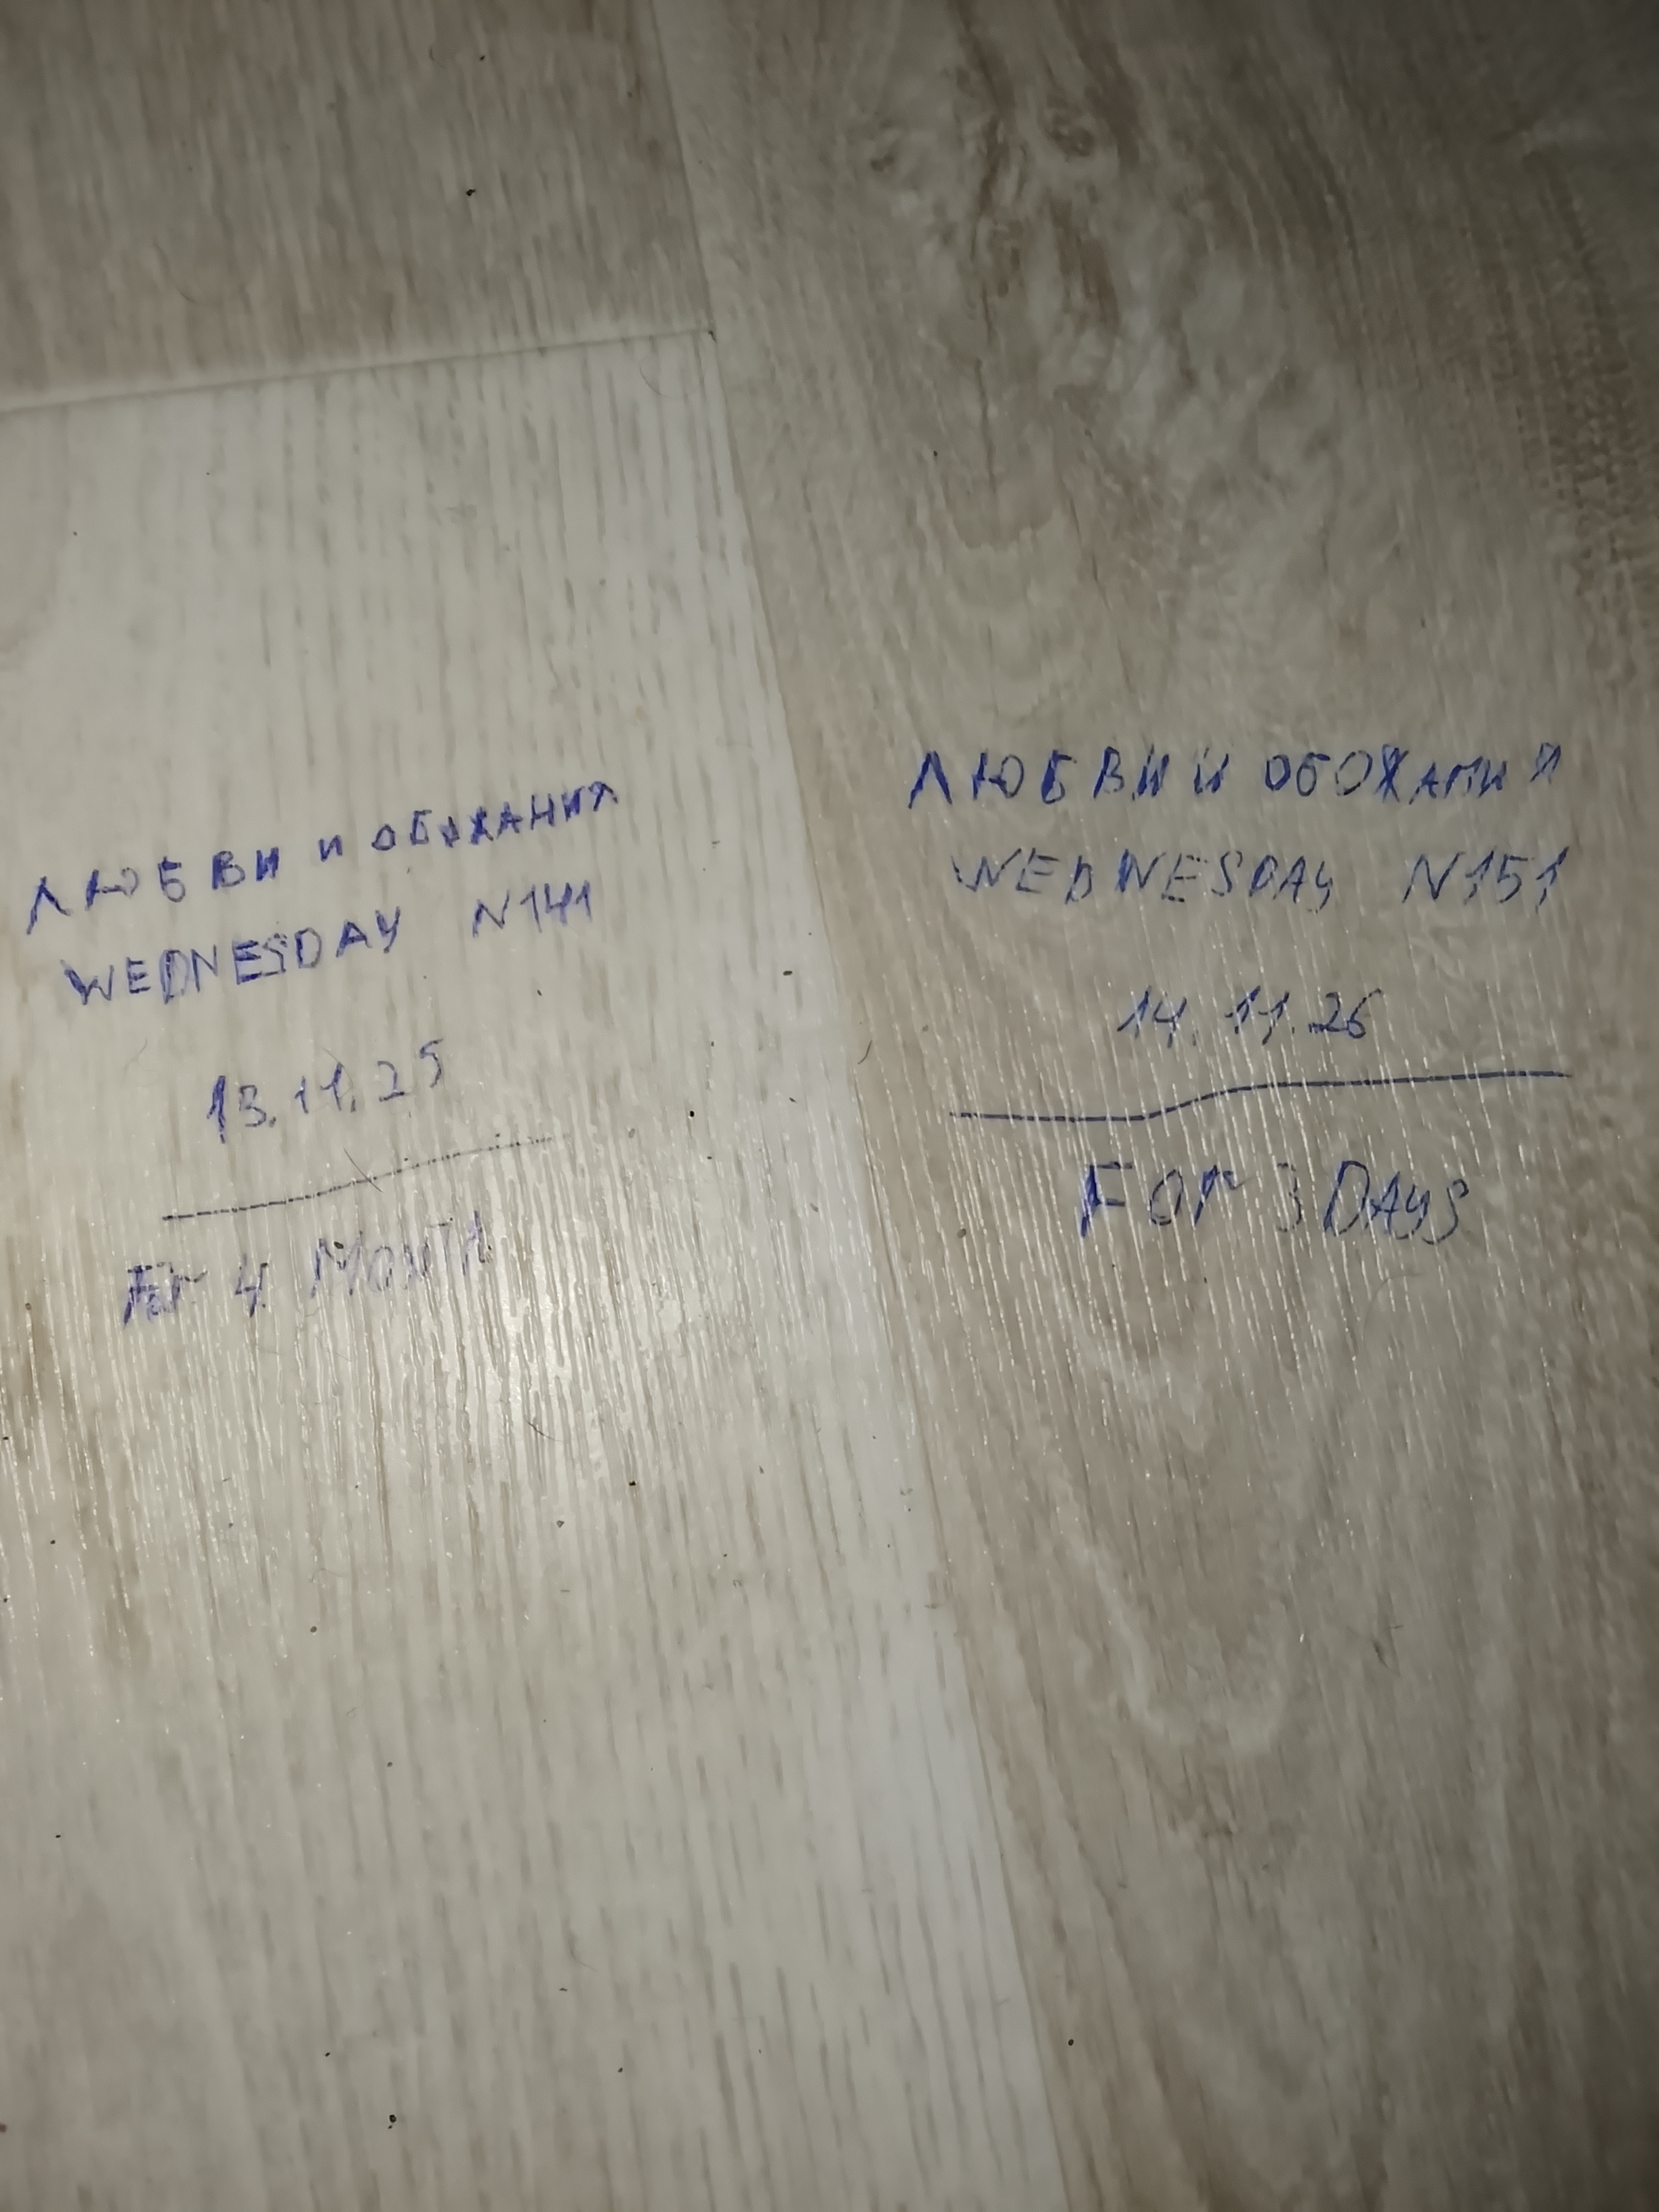 ЛЮБВИ И ОБОЖАНИЯ
WEDNESDAY N141
13.11.25
For 4 MONTH
ЛЮБВИ И ОБОЖАНИЯ
WEDNESDAY N151
14.11.26
FOr 3 DAYS